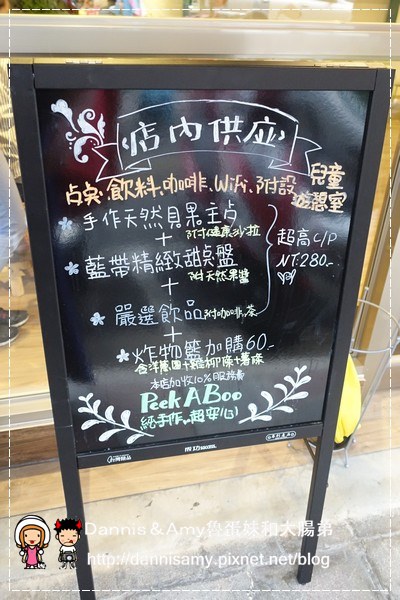 店內供应
点心.飲料.咖啡.WiFi.附設 兒童遊憩室
手作天然貝果主点
附健康沙拉
+
藍帶精緻甜点盤
附天然果醬
+
嚴選飲品 附咖啡.茶
超高C/P
NT:280-
+
炸物籃加購60-
含洋蔥圈+雞柳條+薯條
本店加收10%服務費
Peek A Boo
純手作.超安心!
Dannis & Amy魯蛋妹和大腸弟
http://dannisamy.pixnet.net/blog